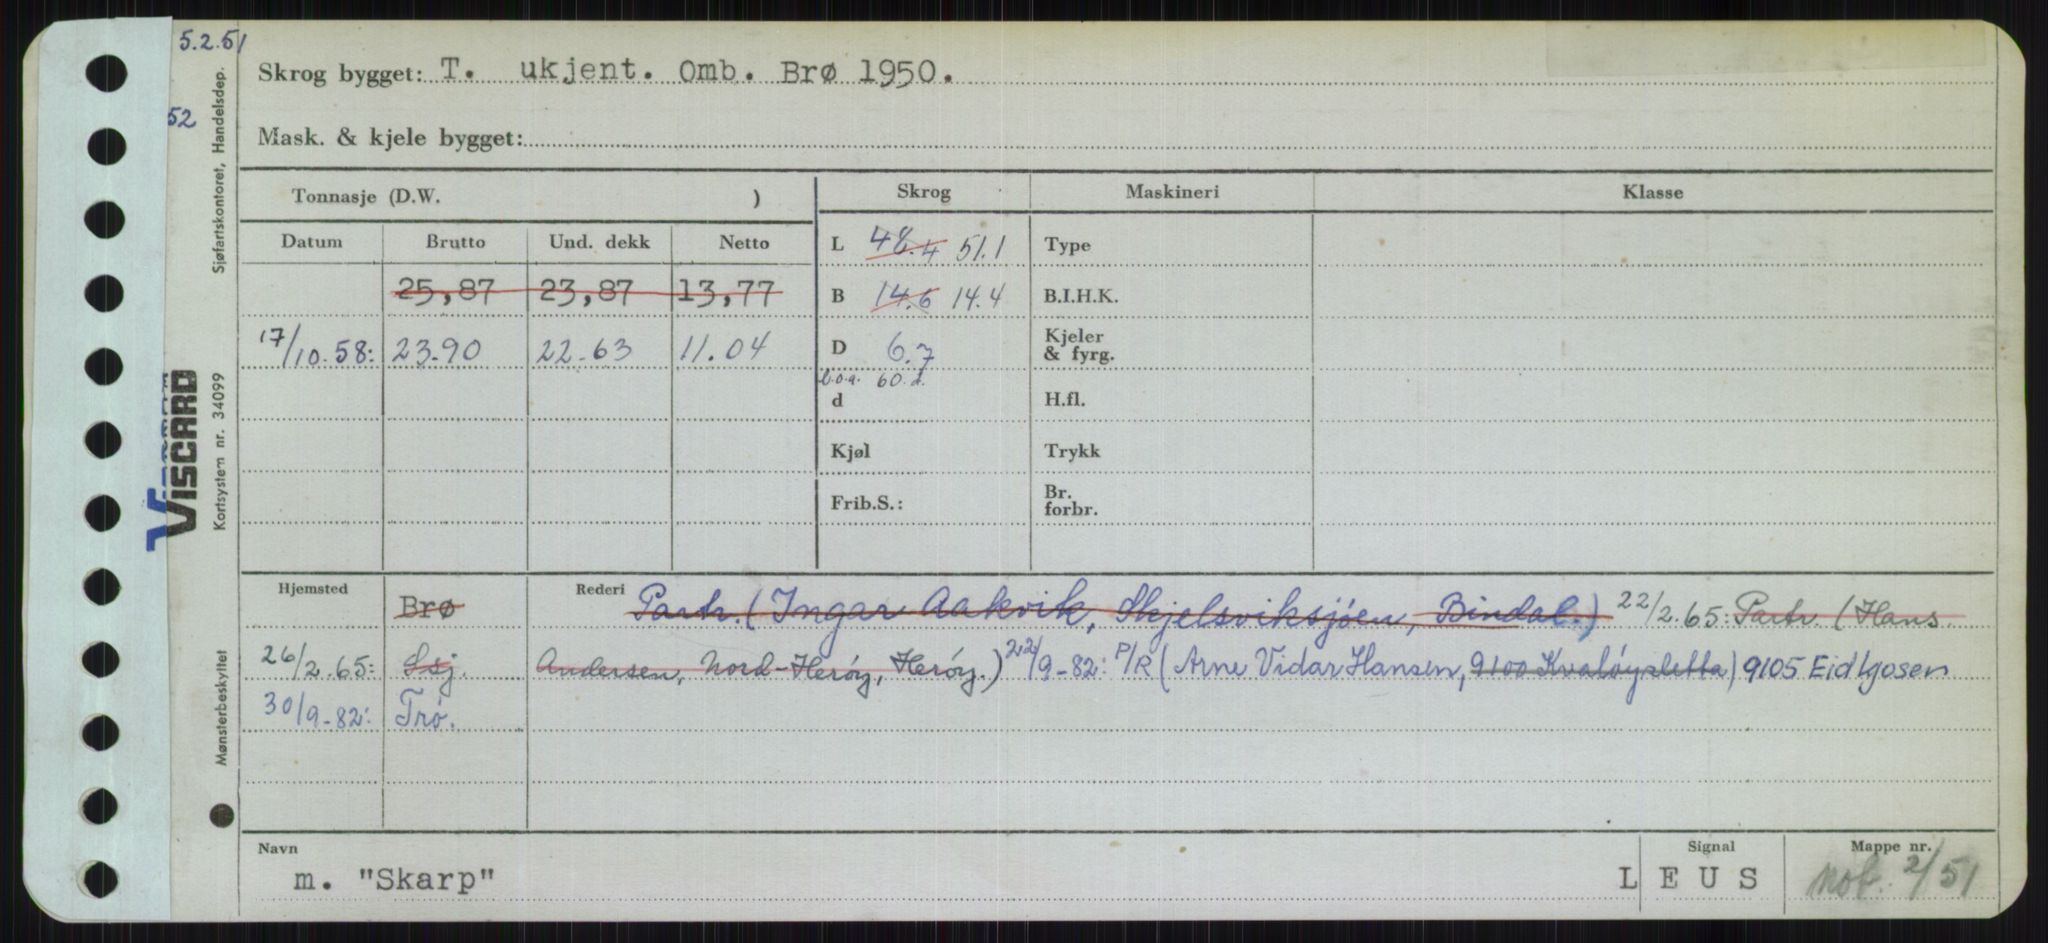 5.2.51
52
Skrog bygget: T. ukjent. Omb. Brø 1950.
Mask. & kjele bygget:
Tonnasje (D.W. ) Skrog Maskineri Klasse
Datum Brutto Und. dekk Netto
L 48.4 51.1 Type
25,87 23,87 13,77 B 14.6 14.4 B.I.H.K.
17/10.58: 23.90 22.63 11.04 D 6.7 Kjeler & fyrg.
l.o.a. 60.
d H.fl.
Kjøl Trykk
Frib.S.: Br. forbr.
Hjemsted Brø Rederi Partr. (Ingar Aakvik, Skjelsviksjøen, Bindal.) 22/2.65: Partr. (Hans
26/2.65: Ssj. Andersen, Nord-Herøy, Herøy.) 22/9-82: P/R (Arne Vidar Hansen, 9100 Kvaløysletta) 9105 Eidkjosen
30/9-82: Trø.
Navn Signal Mappe nr.
m. "Skarp" L E U S nob. 2/51
Sjøfartskontoret, Handelsdep.
Kortsystem nr. 34099
Mønsterbeskyttet
VISCARD